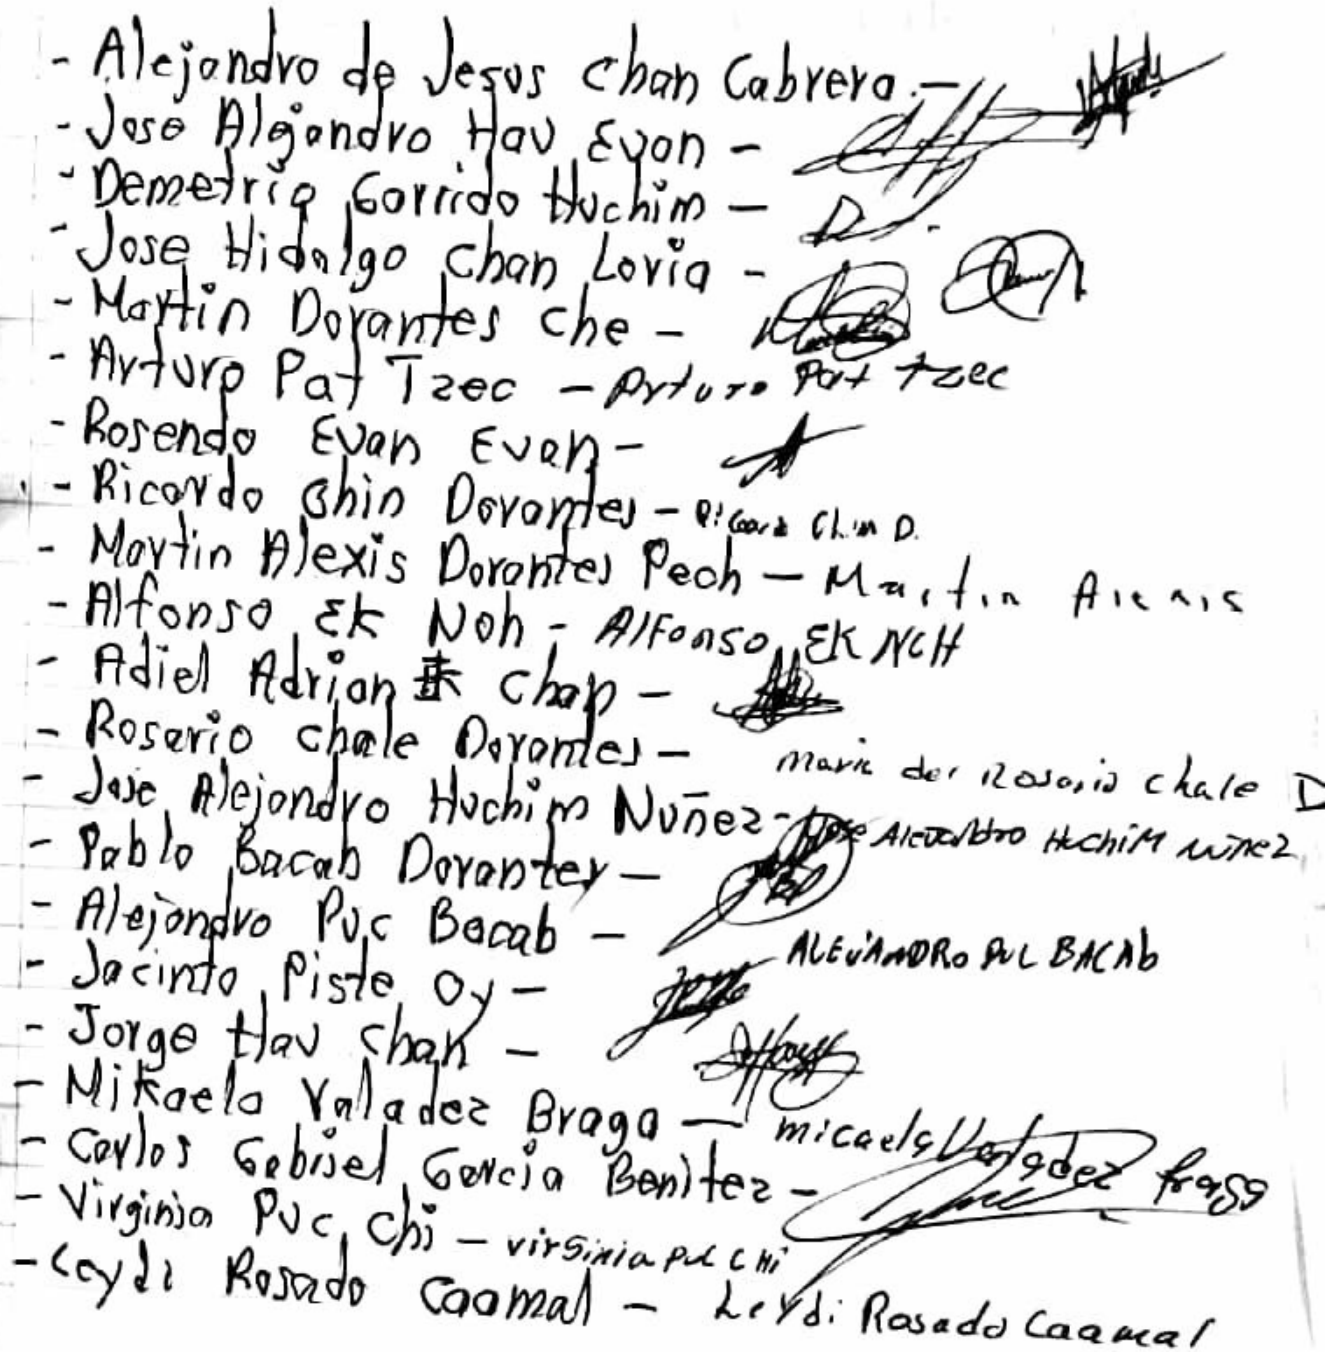 - Alejandro de Jesus Chan Cabrera.-
- Jose Alejandro Hau Evan -
- Demetrio Garrido Huchim -
- Jose Hidalgo Chan Loria -
- Martin Dorantes Che -
- Arturo Pat Tzec - Arturo Pat Tzec
- Rosendo Evan Evan -
- Ricardo Chin Dorantes - Ricardo Chim D.
- Martin Alexis Dorantes Pech - Martin Alexis
- Alfonso Ek Noh - Alfonso EK NCH
- Adiel Adrian Chan -
- Rosario Chale Dorantes - Maria del Rosario Chale D
- Jose Alejandro Huchim Nuñez - Jose Alejandro Huchim Nuñez
- Pablo Bacab Dorantes -
- Alejandro Puc Bacab - ALEJANDRO PUC BACAb
- Jacinto Piste Oy -
- Jorge Hau Chan -
- Mikaela Valadez Braga - micaela Valadez Braga
- Carlos Gabriel Garcia Benitez -
- Virginia Puc Chi - virginia Puc CHi
- Leydi Rosado Caamal - Leydi Rosado Caamal